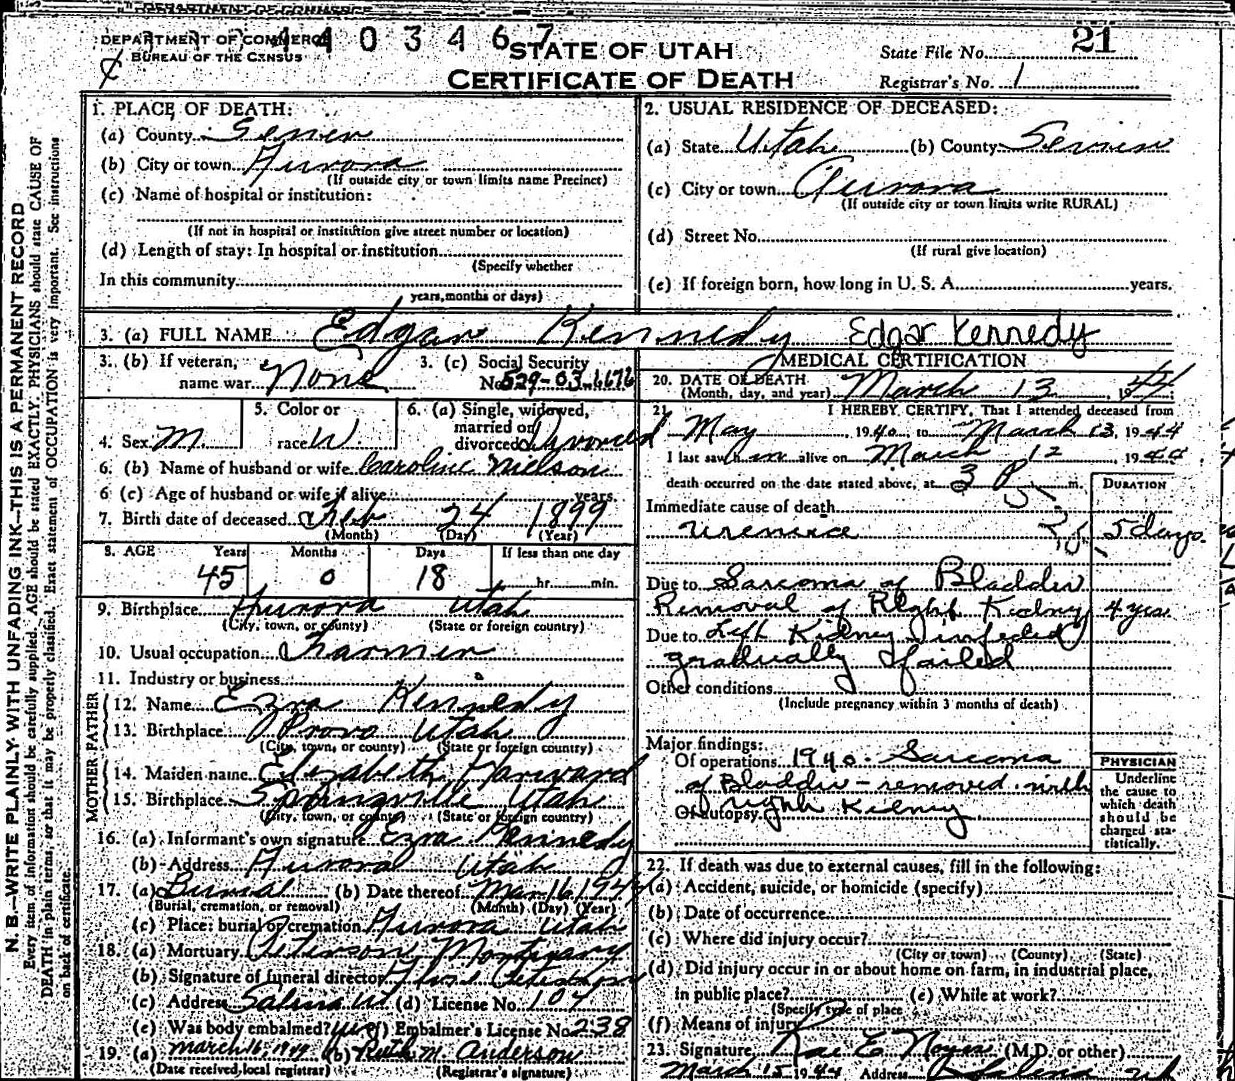 DEPARTMENT OF COMMERCE
DEPARTMENT OF COMMERCE
BUREAU OF THE CENSUS
4403467
STATE OF UTAH
CERTIFICATE OF DEATH
State File No. 21
Registrar's No. 1
N. B.—WRITE PLAINLY WITH UNFADING INK—THIS IS A PERMANENT RECORD
Every item of information should be carefully supplied. AGE should be stated EXACTLY. PHYSICIANS should state CAUSE OF
DEATH in plain terms, so that it may be properly classified. Exact statement of OCCUPATION is very important. See instructions
on back of certificate.
1. PLACE OF DEATH:
(a) County Sevier
(b) City or town Aurora
(If outside city or town limits name Precinct)
(c) Name of hospital or institution:
(If not in hospital or institution give street number or location)
(d) Length of stay: In hospital or institution
(Specify whether
In this community
years, months or days)
2. USUAL RESIDENCE OF DECEASED:
(a) State Utah (b) County Sevier
(c) City or town Aurora
(If outside city or town limits write RURAL)
(d) Street No.
(If rural give location)
(e) If foreign born, how long in U. S. A. years.
3. (a) FULL NAME Edgar Kennedy Edgar Kennedy
3. (b) If veteran, name war None
3. (c) Social Security No. 529-03-6676
4. Sex M.
5. Color or race W
6. (a) Single, widowed, married or divorced Divorced
6. (b) Name of husband or wife Caroline Nielson
6 (c) Age of husband or wife if alive years.
7. Birth date of deceased Feb 24 1899
(Month) (Day) (Year)
8. AGE Years Months Days If less than one day
45 0 18 hr. min.
9. Birthplace Aurora Utah
(City, town, or county) (State or foreign country)
10. Usual occupation Farmer
11. Industry or business
FATHER
12. Name Ezra Kennedy
13. Birthplace Provo Utah
(City, town, or county) (State or foreign country)
MOTHER
14. Maiden name Elizabeth Harward
15. Birthplace Springville Utah
(City, town, or county) (State or foreign country)
16. (a) Informant's own signature Ezra Kennedy
(b) Address Aurora Utah
17. (a) Burial (b) Date thereof Mar 16, 1944
(Burial, cremation, or removal) (Month) (Day) (Year)
(c) Place: burial or cremation Aurora Utah
18. (a) Mortuary Peterson Mortuary
(b) Signature of funeral director
(c) Address Salina Ut (d) License No. 104
(e) Was body embalmed? yes (f) Embalmer's License No. 238
19. (a) March 16, 1944 (b) Ruth M. Anderson
(Date received local registrar) (Registrar's signature)
MEDICAL CERTIFICATION
20. DATE OF DEATH
(Month, day, and year) March 13 1944
21. I HEREBY CERTIFY, That I attended deceased from
May, 1940, to March 13, 1944
I last saw him alive on March 12 1944
death occurred on the date stated above, at 3 P m.
DURATION
Immediate cause of death
Uremice 5 days.
Due to Sarcoma of Bladder
Removal of Right Kidney 4 yrs.
Due to Left Kidney infected
gradually failed
Other conditions
(Include pregnancy within 3 months of death)
Major findings:
Of operations 1940. Sarcoma
of Bladder - removed with
Of autopsy right Kidney
PHYSICIAN
Underline
the cause to
which death
should be
charged sta-
tistically.
22. If death was due to external causes, fill in the following:
(a) Accident, suicide, or homicide (specify)
(b) Date of occurrence
(c) Where did injury occur?
(City or town) (County) (State)
(d) Did injury occur in or about home on farm, in industrial place,
in public place? (e) While at work?
(Specify type of place
(f) Means of injury
23. Signature Rae E. Noyes (M.D. or other)
March 15 1944 Address Salina Ut